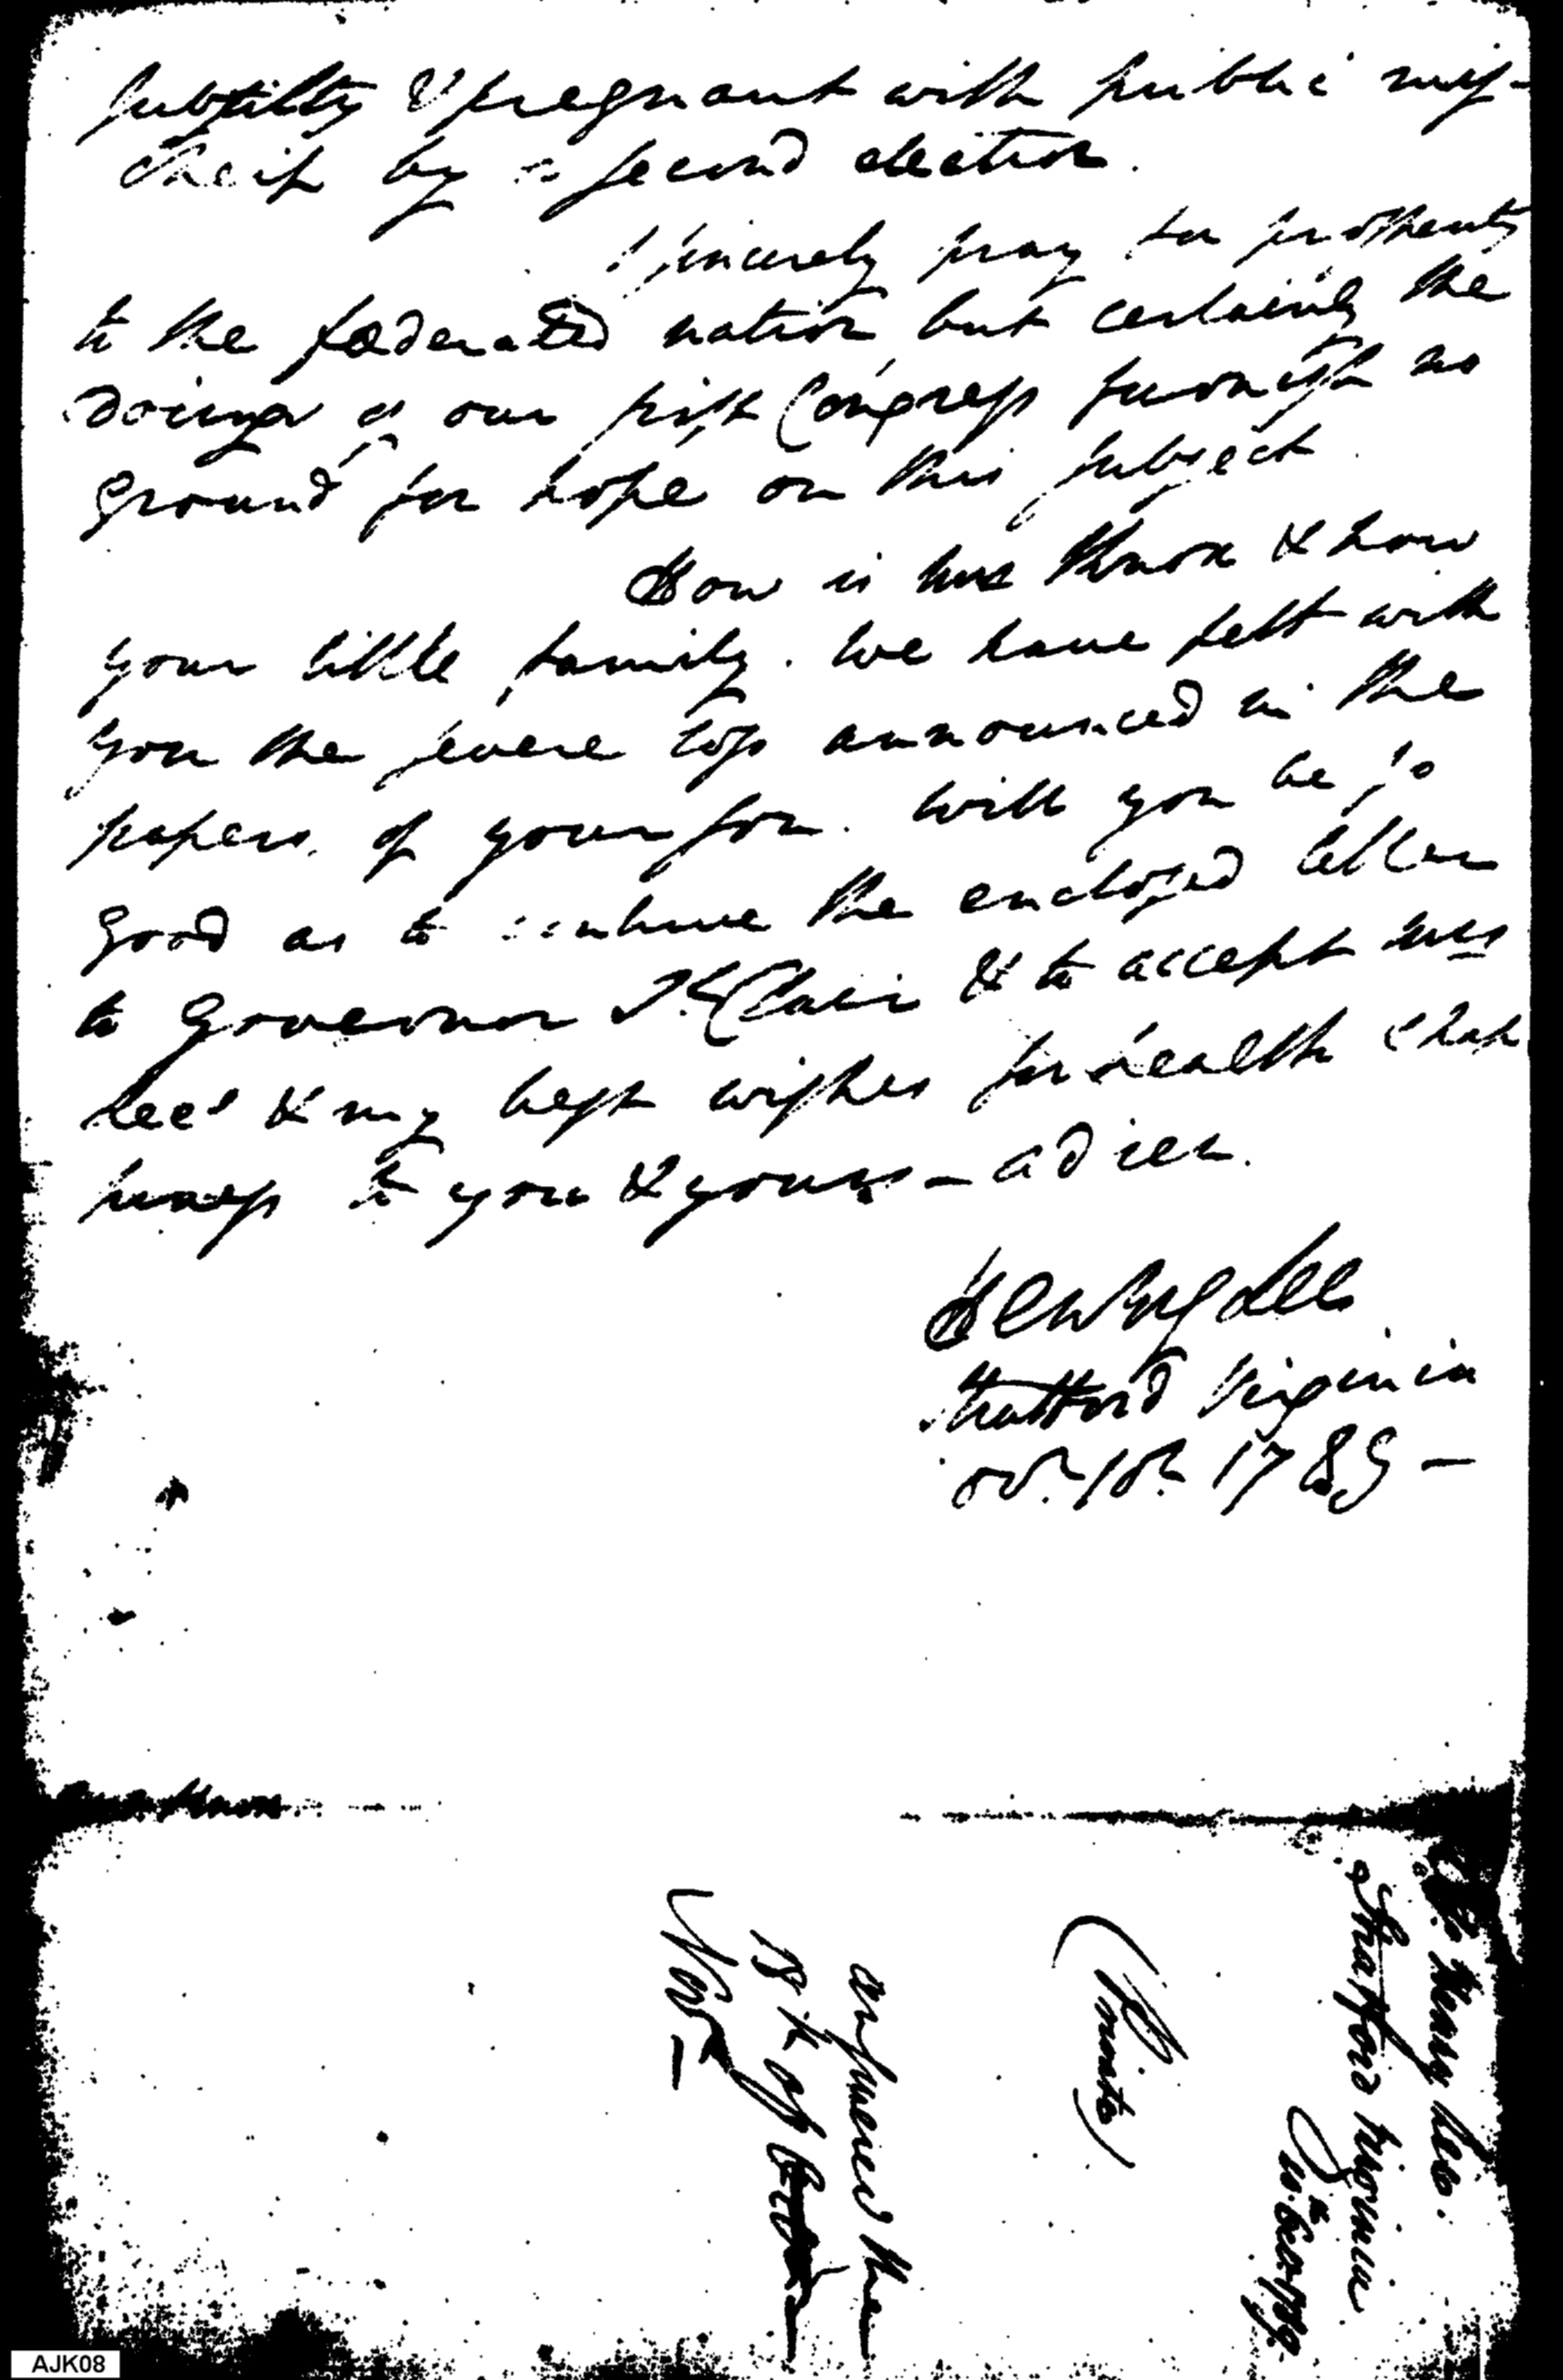 subtilty & pregnant with public mis-
cheif by a second election.
I sincerely pray for prosperity
to the fœderated nation but certainly the
doings of our first Congress furnish no
ground for hope on this subject.
How is mrs Knox & how
your little family. We have felt with
you the severe loss announced in the
papers of your son. Will you be so
good as to the enclosed letter
to Governor St. Clair & to accept mrs
Lees & my best wishes for health & hap
piness to you & yours - adieu.
Henry Lee
Stratford Virginia
Oct. 10th 1789 -
Knox
Henry Lee.
Stratford Virginia
10th Oct 1789.
(Private)
answered the
18th of October
Novr
AJK08